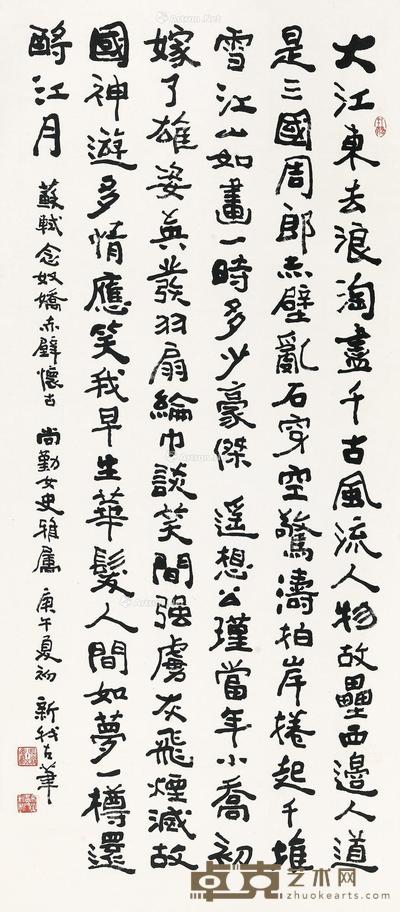 大江東去浪淘盡千古風流人物故壘西邊人道
是三國周郎赤壁亂石穿空驚濤拍岸捲起千堆
雪江山如畫一時多少豪傑 遥想公瑾當年小喬初
嫁了雄姿英發羽扇綸巾談笑間强虜灰飛煙滅故
國神遊多情應笑我早生華髮人間如夢一樽還
酹江月 蘇軾念奴嬌赤壁懷古 尚勤女史雅屬 庚午夏初 新我左筆
卓克艺术网
www.zhuokearts.com